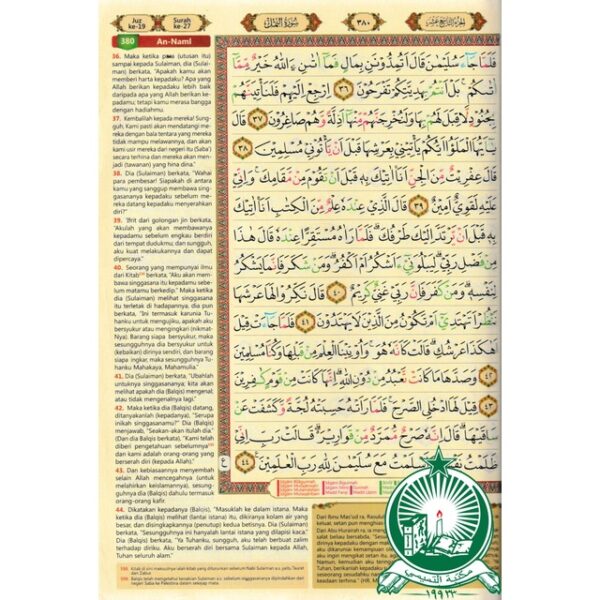 Juz ke-19
Surah ke-27
سورة النمل
٣٨٠
الجزء التاسع عشر
380
An-Naml
36. Maka ketika para (utusan itu)
sampai kepada Sulaiman, dia (Sulai-
man) berkata, "Apakah kamu akan
memberi harta kepadaku? Apa yang
Allah berikan kepadaku lebih baik
daripada apa yang Allah berikan ke-
padamu; tetapi kamu merasa bangga
dengan hadiahmu.
37. Kembalilah kepada mereka! Sung-
guh, Kami pasti akan mendatangi me-
reka dengan bala tentara yang mereka
tidak mampu melawannya, dan akan
kami usir mereka dari negeri itu (Saba')
secara terhina dan mereka akan men-
jadi (tawanan) yang hina dina."
38. Dia (Sulaiman) berkata, "Wahai
para pembesar! Siapakah di antara
kamu yang sanggup membawa singgasananya
kepadaku sebelum me-
reka datang kepadaku menyerahkan
diri?"
39. 'Ifrit dari golongan jin berkata,
"Akulah yang akan membawanya
kepadamu sebelum engkau berdiri
dari tempat dudukmu; dan sungguh,
aku kuat melakukannya dan dapat
dipercaya."
40. Seorang yang mempunyai ilmu
dari Kitab berkata, "Aku akan mem-
bawa singgasana itu kepadamu sebe-
lum matamu berkedip." Maka ketika
dia (Sulaiman) melihat singgasana
itu terletak di hadapannya, dia pun
berkata, "Ini termasuk karunia Tu-
hanku untuk mengujiku, apakah aku
bersyukur atau mengingkari (nikmat-
Nya). Barang siapa bersyukur, maka
sesungguhnya dia bersyukur untuk
(kebaikan) dirinya sendiri, dan barang
siapa ingkar, maka sesungguhnya Tu-
hanku Mahakaya, Mahamulia."
41. Dia (Sulaiman) berkata, "Ubahlah
untuknya singgasananya; kita akan
melihat apakah dia (Balqis) mengenal;
atau tidak mengenalnya lagi."
42. Maka ketika dia (Balqis) datang,
ditanyakanlah (kepadanya), "Serupa
inikah singgasanamu?" Dia (Balqis)
menjawab, "Seakan-akan itulah dia."
(Dan dia Balqis berkata), "Kami telah
diberi pengetahuan sebelumnya
dan kami adalah orang-orang yang
berserah diri (kepada Allah)."
43. Dan kebiasaannya menyembah
selain Allah mencegahnya (untuk
melahirkan keislamannya), sesung-
guhnya dia (Balqis) dahulu termasuk
orang-orang kafir.
44. Dikatakan kepadanya (Balqis),
"Masuklah ke dalam istana. Maka
ketika dia (Balqis) melihat (lantai
istana) itu, dikiranya kolam air yang
besar, dan disingkapkannya (penutup)
kedua betisnya. Dia (Sulaiman) berkata,
"Sesungguhnya ini hanyalah lantai
istana yang dilapisi kaca." Dia (Balqis)
berkata, "Ya Tuhanku, sungguh, aku telah berbuat zalim
terhadap diriku. Aku berserah diri bersama Sulaiman kepada Allah,
Tuhan seluruh alam."
فلما جاء سليمن قال اتمدونن بمال فما اتىن الله خير مما
اتىكم بل انتم بهديتكم تفرحون ٣٦ ارجع اليهم فلنأتينهم
بجنود لا قبل لهم بها ولنخرجنهم منها اذلة وهم صاغرون ٣٧ قال
يايها الملؤا ايكم يأتيني بعرشها قبل ان يأتوني مسلمين ٣٨
قال عفريت من الجن انا اتيك به قبل ان تقوم من مقامك واني
عليه لقوي امين ٣٩ قال الذي عنده علم من الكتب انا اتيك
به قبل ان يرتد اليك طرفك فلما راه مستقرا عنده قال هذا
من فضل ربي ليبلوني ءاشكر ام اكفر ومن شكر فانما يشكر
لنفسه ومن كفر فان ربي غني كريم ٤٠ قال نكروا لها عرشها
ننظر اتهتدي ام تكون من الذين لا يهتدون ٤١ فلما جاءت قيل
اهكذا عرشك قالت كانه هو واوتينا العلم من قبلها وكنا مسلمين
٤٢ وصدها ما كانت تعبد من دون الله انها كانت من قوم كفرين
٤٣ قيل لها ادخلي الصرح فلما راته حسبته لجة وكشفت عن
ساقيها قال انه صرح ممرد من قوارير قالت رب اني
ظلمت نفسي واسلمت مع سليمن لله رب العلمين ٤٤
مكتبة